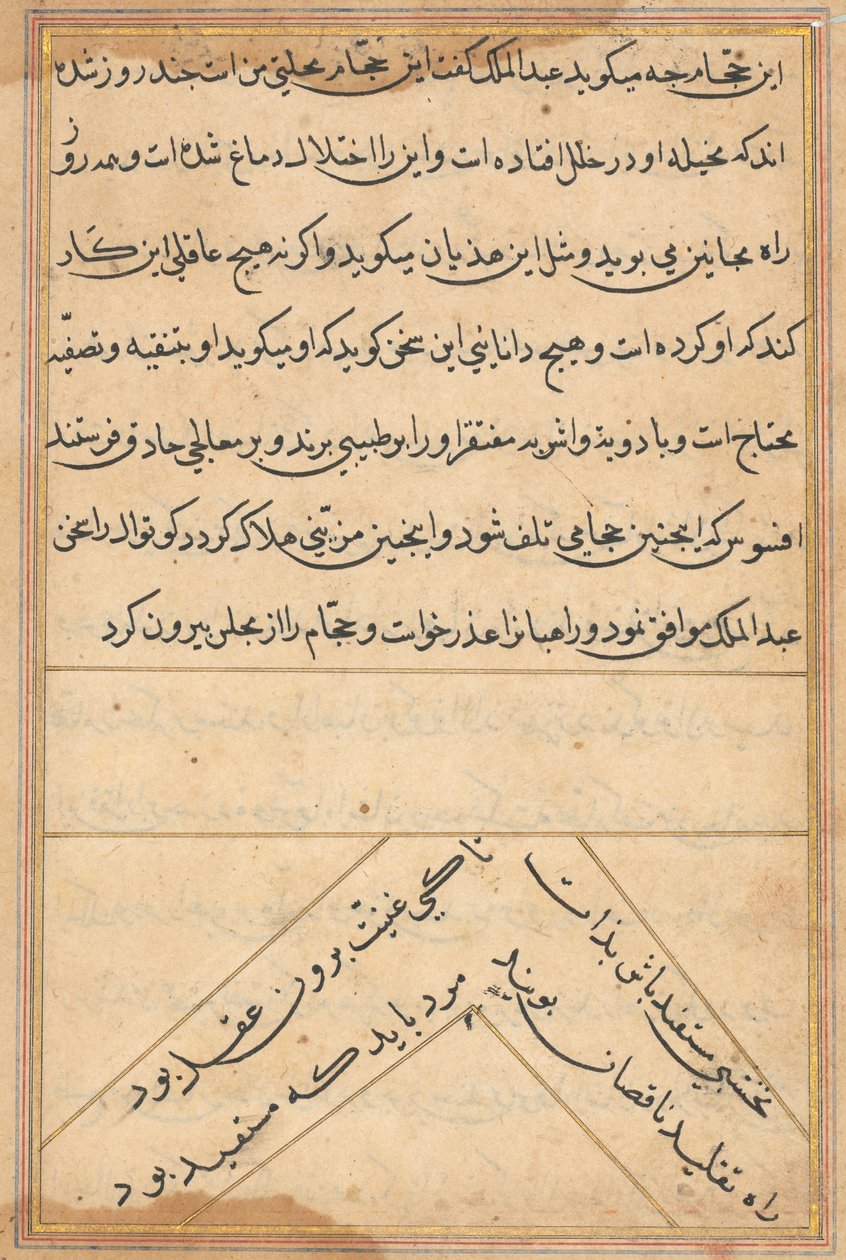 این حجّام جه میکوید عبدالملک کفت این حجّام محلیتی من است جند روز شده
اند که مخیله او در خلل افتاده است و این را اختلال دماغ شده است و همه روز
راه مجانین می بوید و مثل این هذیان میکوید و اکرنه هیج عاقلی این کار
کند که او کرده است و هیج دانایئی این سخن کوید که او میکوید او بتنقیه و تصفیه
محتاج است و بادویة و اشربه مفتقر او را بر طبیبی برند و بر معالجی حاذق فرستند
افسوس که اینجنین حجامی تلف شود و اینجنین مزیّنی هلاک کردد کوتوال را سخن
عبدالملک موافق نمود و راهبانرا عذر خواست و حجّام را از مجلس بیرون کرد
نخشبی مستفید باش بذات
تا کی غنیت برون عقل بود
راه تقلید ناقصان بویند
مرد باید که مستفید بود